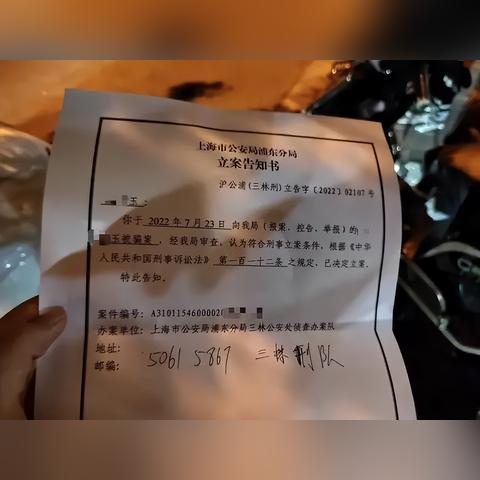 上海市公安局浦东分局
立案告知书
沪公浦(三林刑)立告字〔2022〕02107 号
玉:
你于 2022 年 7 月 23 日 向我局(报案、控告、举报)的
玉被骗案,经我局审查,认为符合刑事立案条件,根据《中华
人民共和国刑事诉讼法》 第一百一十二条 之规定,已决定立案.
特此告知。
案件编号: A3101154600002
办案单位: 上海市公安局浦东分局三林公安处侦查办案队
地址:
5061 5867 三林刑队
邮编: